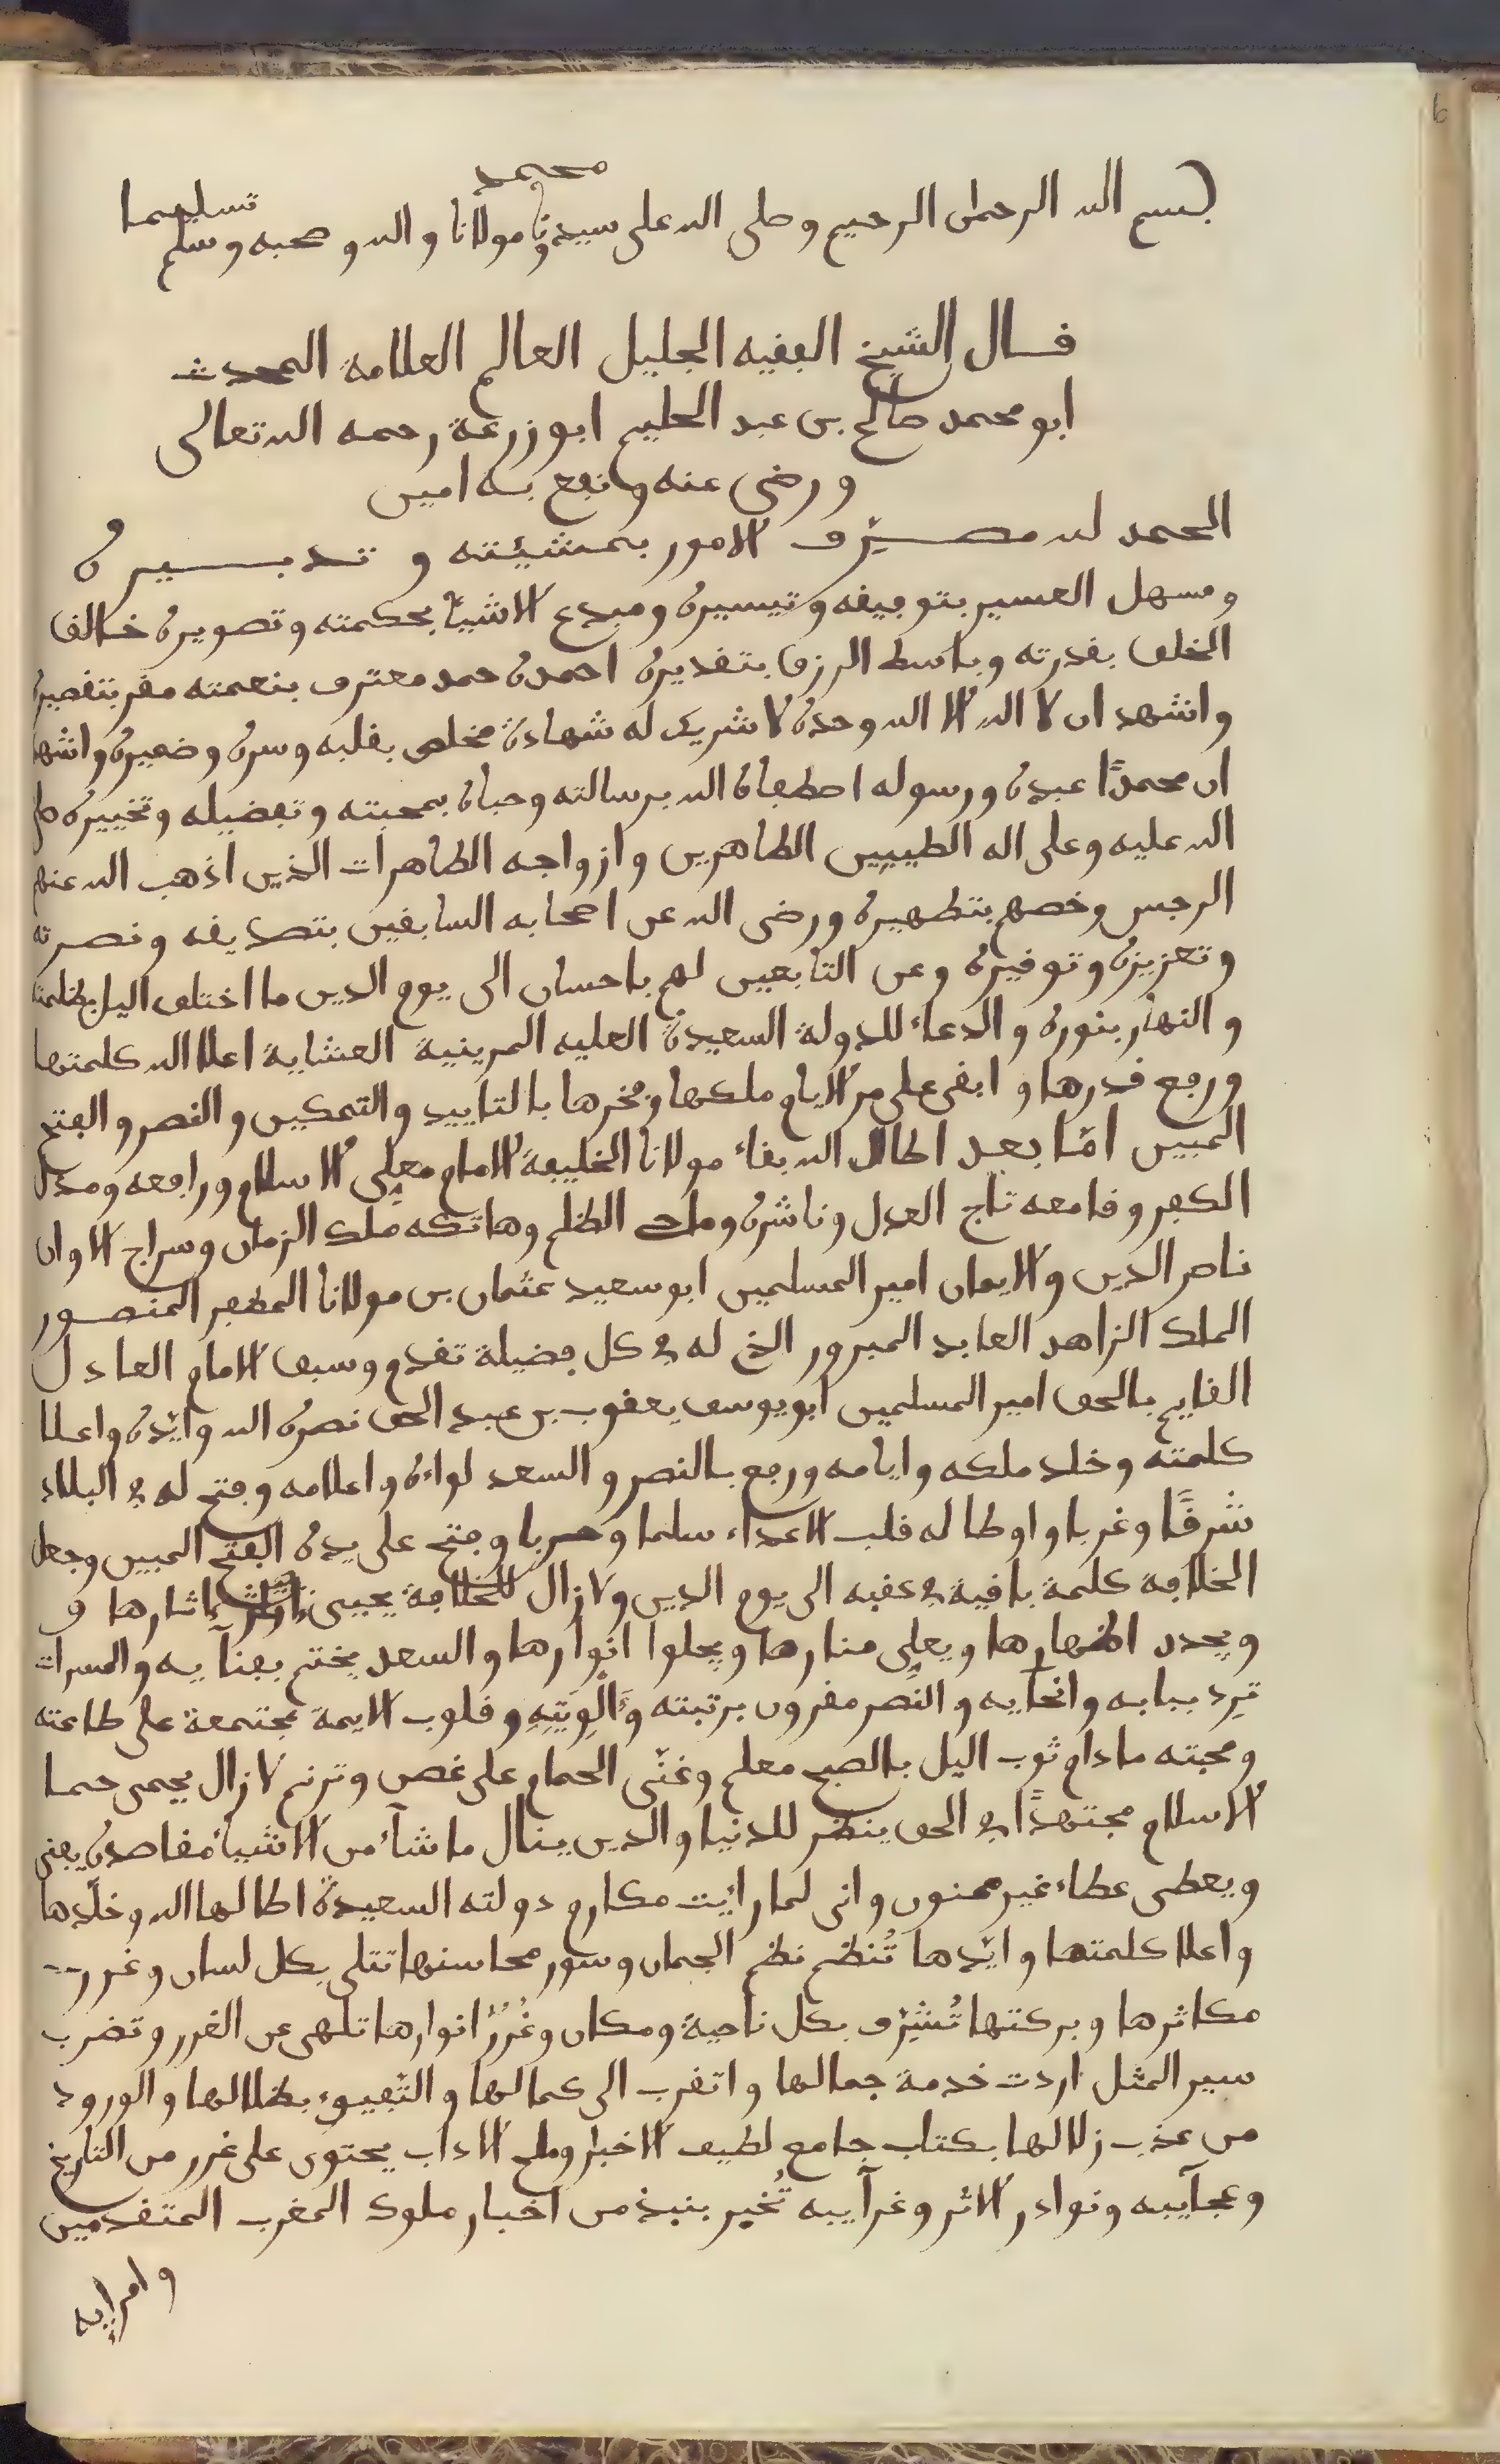 بسم الله الرحمان الرحيم وصلى الله على سيدنا ومولانا محمد واله وصحبه وسلم تسليما
قال الشيخ الفقيه الجليل العالم العلامة المحدث
ابو محمد صالح بن عبد الحليم ابو زرعة رحمه الله تعالى
ورضي عنه ونفع به امين
الحمد لله مصرّف الامور بمشيئته وتدبيره
ومسهل العسير بتوفيقه وتيسيره ومبدع الاشيآ بحكمته وتصويره خالق
الخلق بقدرته وباسط الرزق بتقديره احمده حمد معترف بنعمته مقر بتقصيره
واشهد ان لا اله الا الله وحده لا شريك له شهادة مخلص بقلبه وسره وضميره واشهد
ان محمدًا عبده ورسوله اصطفاه الله برسالته وحباه بمحبته وتفضيله وتخييره صلى
الله عليه وعلى اله الطيبين الطاهرين وازواجه الطاهرات الذين اذهب الله عنهم
الرجس وخصهم بتطهيره ورضى الله عن اصحابه السابقين بتصديقه ونصرته
وتعزيزه وتوقيره وعن التابعين لهم باحسان الى يوم الدين ما اختلف اليل بظلمته
والنهار بنوره والدعاء للدولة السعيدة العليه المرينية العشاية اعلا الله كلمتها
ورفع قدرها وابقى على مر الايام ملكها وفخرها بالتاييد والتمكين والنصر والفتح
المبين امّا بعد اطال الله بقاء مولانا الخليفة الامام معلى الاسلام ورافعه ومذل
الكفر وقامعه تاج العدل وناشره وماحى الظلم وهاتكه ملك الزمان وسراج الاوان
ناصر الدين والايمان امير المسلمين ابو سعيد عثمان بن مولانا المظفر المنصور
الملك الزاهد العابد المبرور الذي له في كل فضيلة تقدم وسبق الامام العادل
القايم بالحق امير المسلمين ابو يوسف يعقوب بن عبد الحق نصره الله وايّده واعلا
كلمته وخلد ملكه وايامه ورفع بالنصر والسعد لواءه واعلامه وفتح له في البلاد
شرقًا وغربا واوطا له قلب الاعداء سلما وحربا وفتح على يده الفتح المبين وجعل
الخلافة كلمة باقية في عقبه الى يوم الدين ولا زال للخلافة يحيى اثارها و
ويجدد اظهارها ويعلي منارها ويجلوا انوارها والسعد يختم بفنآيه والمسرات
ترد ببابه وانحآيه والنصر مقرون برتبته وألْوِيَتِهِ وقلوب الايمة مجتمعة على طاعته
ومحبته ما دام ثوب اليل بالصبح معلم وغنّى الحمام على غصن وترنم لا زال يحمى حما
الاسلام مجتهدًا في الحق ينظر للدنيا والدين ينال ما شاء من الاشياء مقاصده يفنى
ويعطى عطاء غير ممنون وانى لما رايت مكارم دولته السعيدة اطالها الله وخلّدها
واعلا كلمتها وايّدها تُنظم نظم الجمان وسور محاسنها تتلى بكل لسان وغرر
مكاثرها وبركتها تُشرّف بكل ناحية ومكان وغُرَرُ انوارها تلهى عن الغرر وتضرب
سير المثل اردت خدمة جمالها واتقرب الى كمالها والتّفيوء بظلالها والورود
من عذب زلالها بكتاب جامع لطيف الاخبار وملح الاداب يحتوى على غرر من التاريخ
وعجآيبه ونوادر الاثر وغرآيبه تُخبر بنبذ من اخبار ملوك المغرب المتقدمين
وامرايه